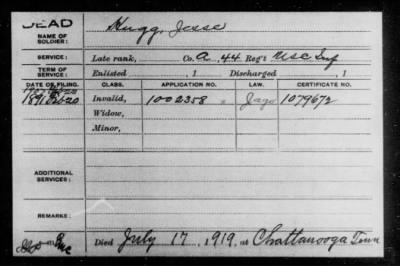 DEAD
NAME OF SOLDIER: Hugg, Jesse
SERVICE: Late rank, Co. A, 44 Reg't USC Inf
TERM OF SERVICE: Enlisted , 1 Discharged , 1
DATE OF FILING. CLASS. APPLICATION NO. LAW. CERTIFICATE NO.
1891 Invalid, 1002358 1079672
Widow,
Minor,
ADDITIONAL SERVICES:
REMARKS:
Died July 17, 1919, at Chattanooga Tenn